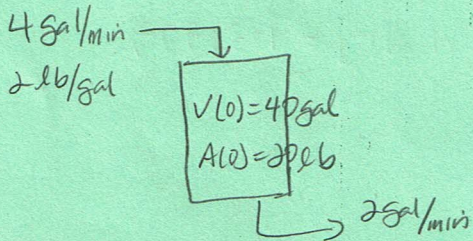 4 gal/min
2 lb/gal
V(0)=40gal
A(0)=20lb.
2gal/min